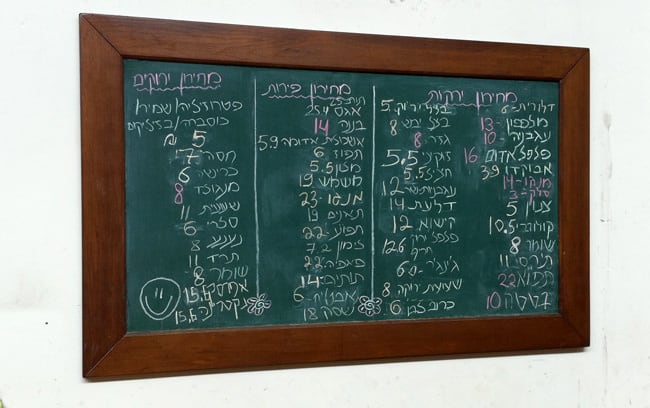 מחירון ירקות
דלורית- 6
מלפפון 13
עגבניה 10
פלפל אדום 16
אבוקדו 39
מנגו- 14
סלק- 3
צנון 5
קולורבי 10.5
שומר 8
תירס 11
22
10
5
בצל יבש 8
גזר 8
5.5
חציל 5.5
12
דלעת 14
קישוא 12
פלפל ירוק
חריף 12.6
ג'ינג'ר
שעועית ירוקה 8
כרוב לבן 6
מחירון פירות
תות- 25
אגס 25.4
בננה 14
אשכולית אדומה 5.9
תפוז 6
מלון 5.5
משמש 19
מנגו 23
תאנים 13
תפוח 22
לימון 7.2
פאפיה 22
תותים 14
אבטיח 6
שסק 18
מחירון ירוקים
פטרוזיליה/שמיר/
כוסברה/בזיליקום
5 ₪
חסה 7
כרישה 6
מנגולד 8
שעועית 11
סלרי 6
נענע 8
תרד 11
שומר 8
אפרסק 15.6
נקטרינה 15.6